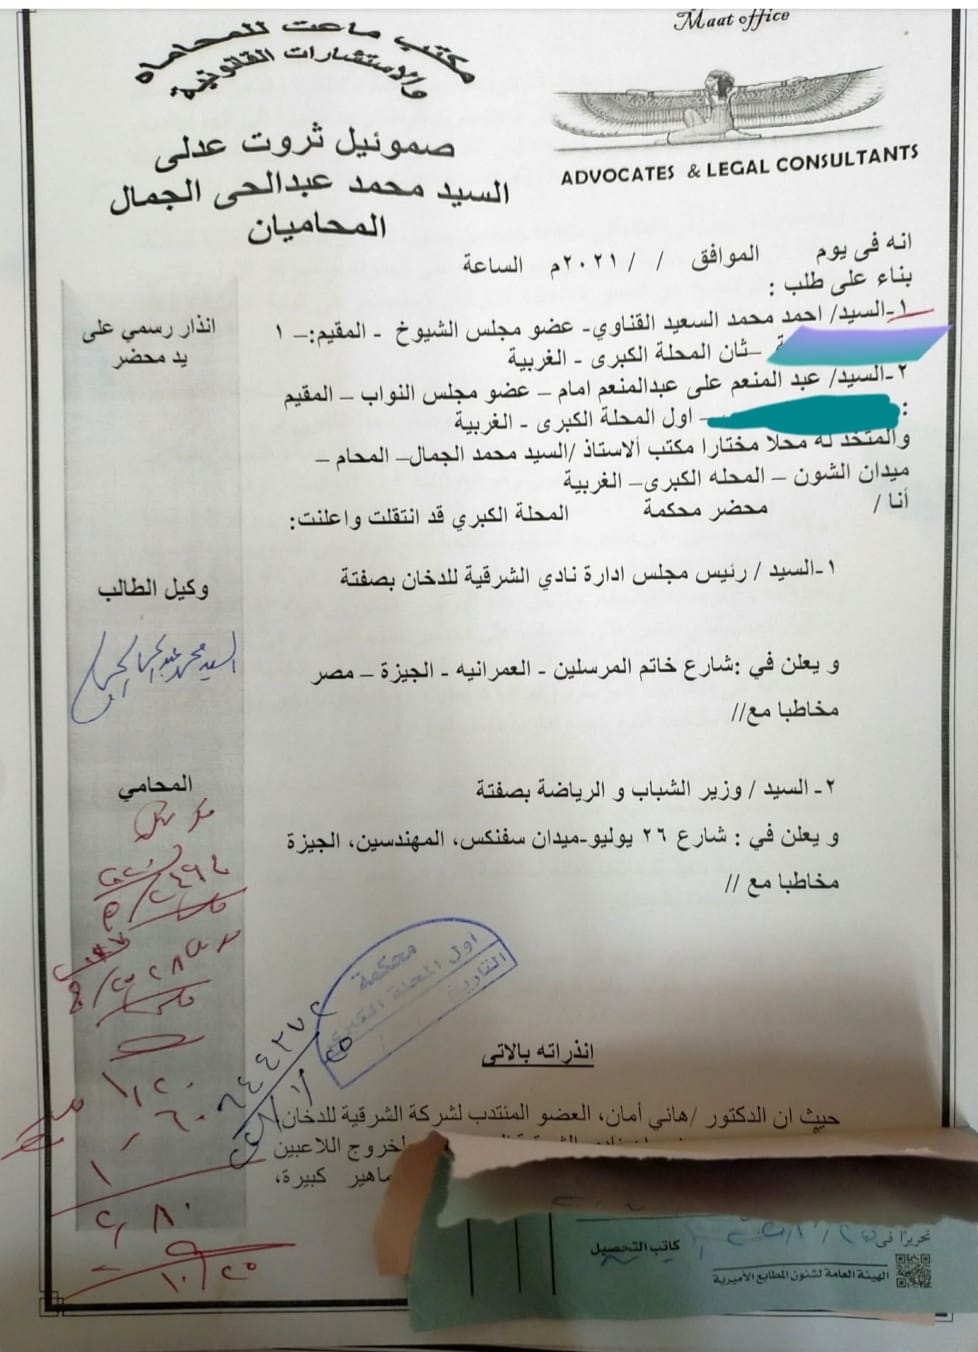 Maat office
مكتب ماعت للمحاماه
والاستشارات القانونية
صموئيل ثروت عدلى
السيد محمد عبدالحى الجمال
المحاميان
ADVOCATES & LEGAL CONSULTANTS
انه فى يوم الموافق / / ٢٠٢١م الساعة
بناء على طلب :
١-السيد/ احمد محمد السعيد القناوي- عضو مجلس الشيوخ - المقيم:– ١
–ثان المحلة الكبرى - الغربية
٢-السيد/ عبد المنعم على عبدالمنعم امام – عضو مجلس النواب – المقيم
: – اول المحلة الكبرى - الغربية
والمتخذ له محلا مختارا مكتب ألاستاذ /السيد محمد الجمال– المحام –
ميدان الشون – المحله الكبرى– الغربية
أنا / محضر محكمة المحلة الكبري قد انتقلت واعلنت:
انذار رسمي على
يد محضر
١-السيد / رئيس مجلس ادارة نادي الشرقية للدخان بصفتة
وكيل الطالب
السيد محمد عبدالحى الجمال
و يعلن في :شارع خاتم المرسلين - العمرانيه - الجيزة – مصر
مخاطبا مع//
المحامي
٢- السيد / وزير الشباب و الرياضة بصفتة
و يعلن في : شارع ٢٦ يوليو-ميدان سفنكس، المهندسين، الجيزة
مخاطبا مع //
محكمة
أول المحلة الكبرى
التاريخ /
٦٤٤٣٧٢
انذراته بالاتى
حيث ان الدكتور /هاني أمان، العضو المنتدب لشركة الشرقية للدخان،
لخروج اللاعبين
ماهير كبيرة،
تحريرًا فى
كاتب التحصيل
الهيئة العامة لشئون المطابع الأميرية